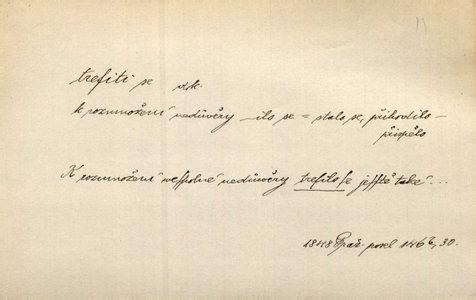 trefiti se dk.
k rozmnožení nedůvěry —ilo se = stalo se, přihodilo —
přispělo
K rozmnožení wespolné nedůwěry trefilo se jessstě také ...
1848 Praž. posel 146b, 30.